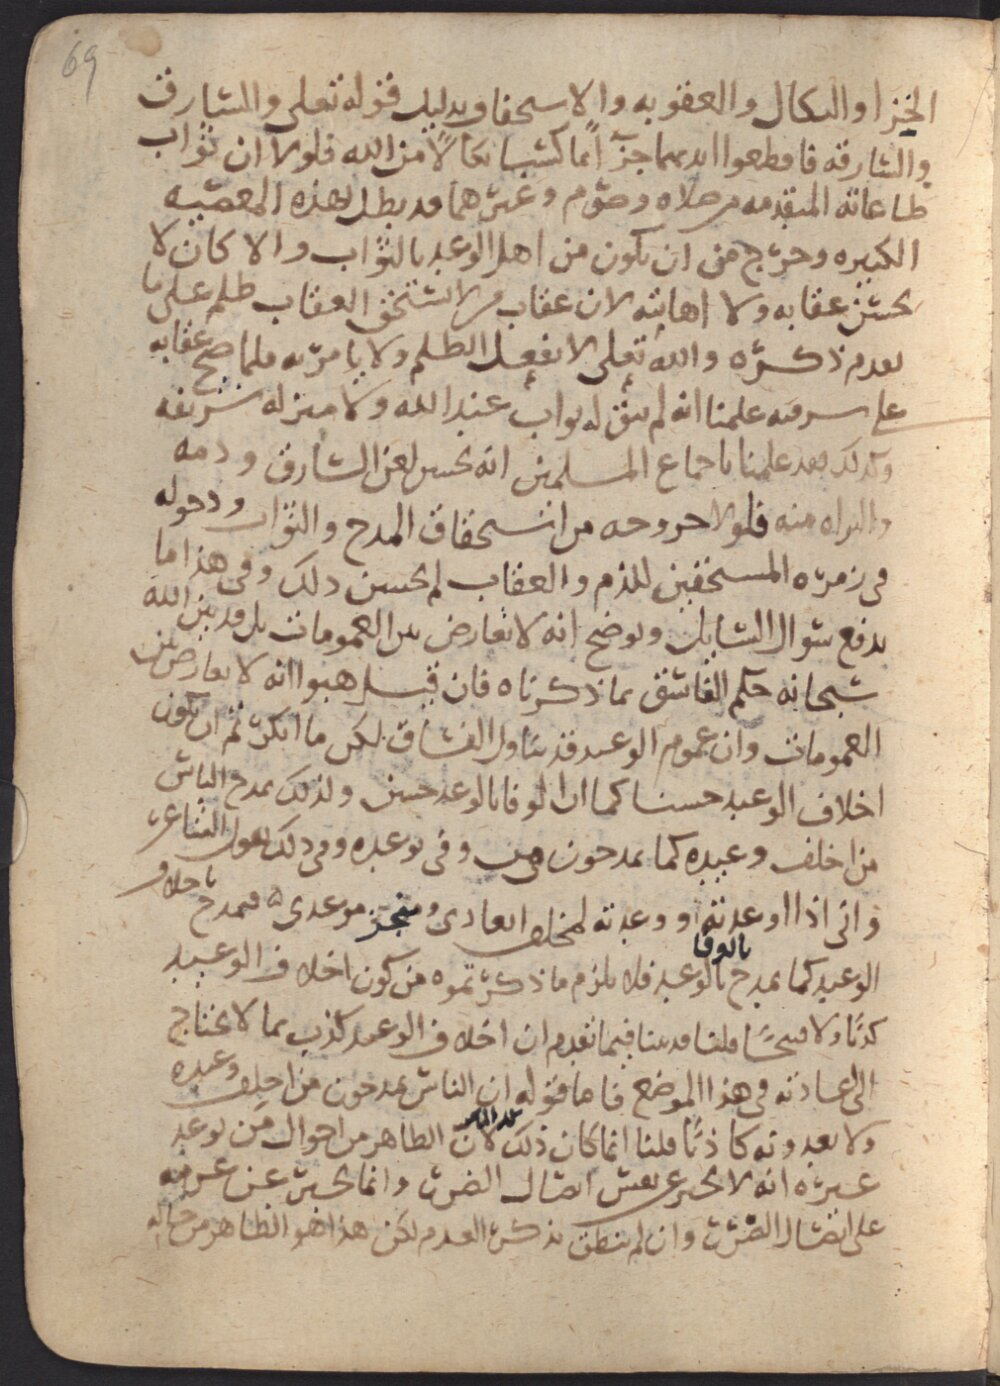 69
الخزا والنكال والعقوبه والاستحقاق بدليل قوله تعلى والسارق
والسارقه فاقطعوا ايديهما جزآ بما كسبا نكالا من الله فلولا ان ثواب
طاعاته المتقدمه من صلاه وصوم وغيرهما قد بطل بهذه المعصيه
الكبيره وخرج من ان يكون من اهل الوعد بالثواب والا كان لا
يحسن عقابه ولا اهانته لان عقاب من لا يستحق العقاب ظلم على ما
تقدم ذكره والله تعلى لا يفعل الظلم ولا يامر به فلما صح عقابه
على سرقته علمنا انه لم يبق له ثواب عند الله ولا منزله شريفه
وكذلك فقد علمنا باجماع المسلمين انه يحسن لعن السارق وذمه
والبراه منه فلولا خروجه من استحقاق المدح والثواب ودخوله
في زمره المستحقين للذم والعقاب لم يحسن ذلك وفي هذا ما
يدفع سوال السايل ويوضح انه لا تعارض بين العمومات بل قد بين الله
سبحانه حكم الفاسق بما ذكرناه فان قيل هبوا انه لا تعارض بين
العمومات وان عموم الوعيد قد تناول الفساق لكن ما انكرتم ان يكون
اخلاف الوعيد حسنا كما ان الوفا بالوعد حسن ولذلك يمدح الناس
من اخلف وعيده كما يمدحون من وفى بوعده وفي ذلك يقول الشاعر
واني اذا اوعدته او وعدته لمخلف ايعادي ومنجز موعدي فيمدح باخلاف
الوعيد كما يمدح بالوفا بالوعد فلا يلزم ما ذكرتموه من كون اخلاف الوعيد
كذبا ولا قبيحا قلنا قد بينا فيما تقدم ان اخلاف الوعيد كذب بما لا يحتاج
الى اعادته في هذا الموضع فاما قوله ان الناس يمدحون من اخلف وعيده
ولا يعدونه كاذبا قلنا انما كان ذلك كذلك لان الظاهر من احوال من توعد
غيره انه لا يخبر عن نفس ايصال الضرر وانما يخبر عن عزمه
على ايصال الضرر وان لم ينطق بذكر العزم لكن هذا هو الظاهر من حاله